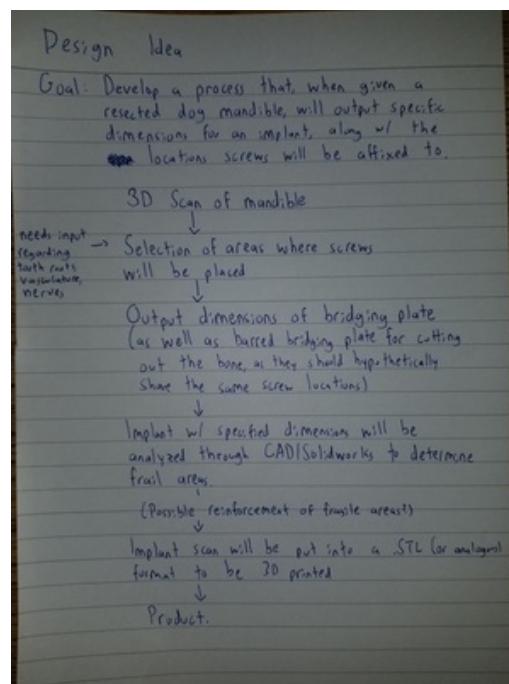 Design Idea
Goal: Develop a process that, when given a
resected dog mandible, will output specific
dimensions for an implant, along w/ the
locations screws will be affixed to.
3D Scan of mandible
↓
needs input
regarding
tooth roots
vasculature,
nerves
→ Selection of areas where screws
will be placed
↓
Output dimensions of bridging plate
(as well as barred bridging plate for cutting
out the bone, as they should hypothetically
share the same screw locations)
↓
Implant w/ specified dimensions will be
analyzed through CAD/Solidworks to determine
frail areas.
(Possible reinforcement of fragile areas?)
↓
Implant scan will be put into a .STL (or analogous)
format to be 3D printed
↓
Product.